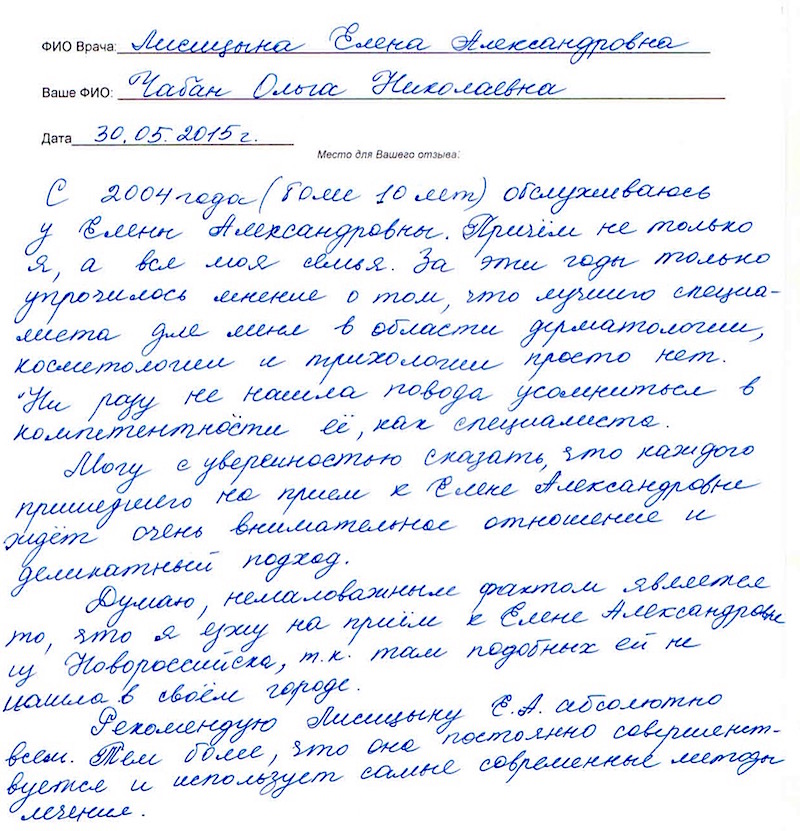 ФИО Врача: Лисицына Елена Александровна
Ваше ФИО: Чабан Ольга Николаевна
Дата 30.05.2015г.
Место для Вашего отзыва:
С 2004 года (более 10 лет) обслуживаюсь
у Елены Александровны. Причём не только
я, а вся моя семья. За эти годы только
упрочилось мнение о том, что лучшего специа-
листа для меня в области дерматологии,
косметологии и трихологии просто нет.
Ни разу не нашла повода усомниться в
компетентности её, как специалиста.
Могу с уверенностью сказать, что каждого
пришедшего на прием к Елене Александровне
ждёт очень внимательное отношение и
деликатный подход.
Думаю, немаловажным фактом является
то, что я езжу на приём к Елене Александровне
из Новороссийска, т.к. там подобных ей не
нашла в своём городе.
Рекомендую Лисицыну Е.А. абсолютно
всем. Тем более, что она постоянно совершенст-
вуется и использует самые современные методы
лечения.